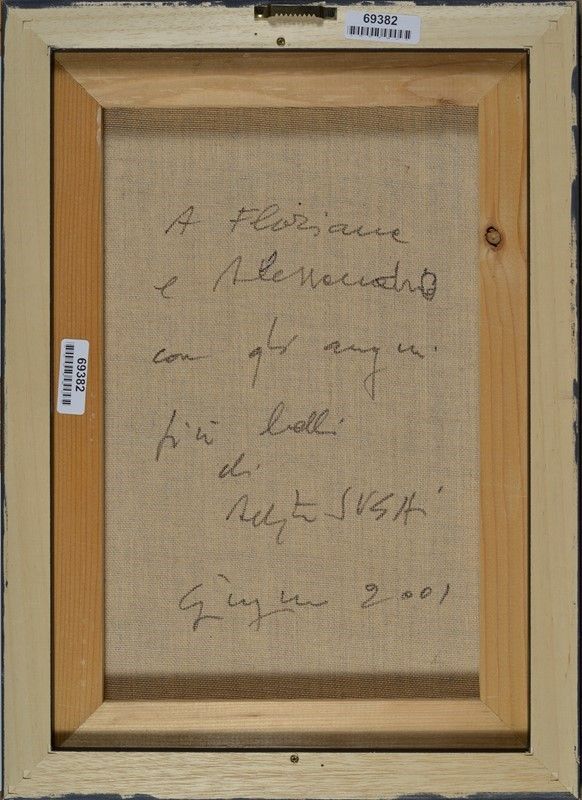 69382
A Floriana
e Alessandro
con gli auguri
più belli
di
SUSHI
Giugno 2001
69382